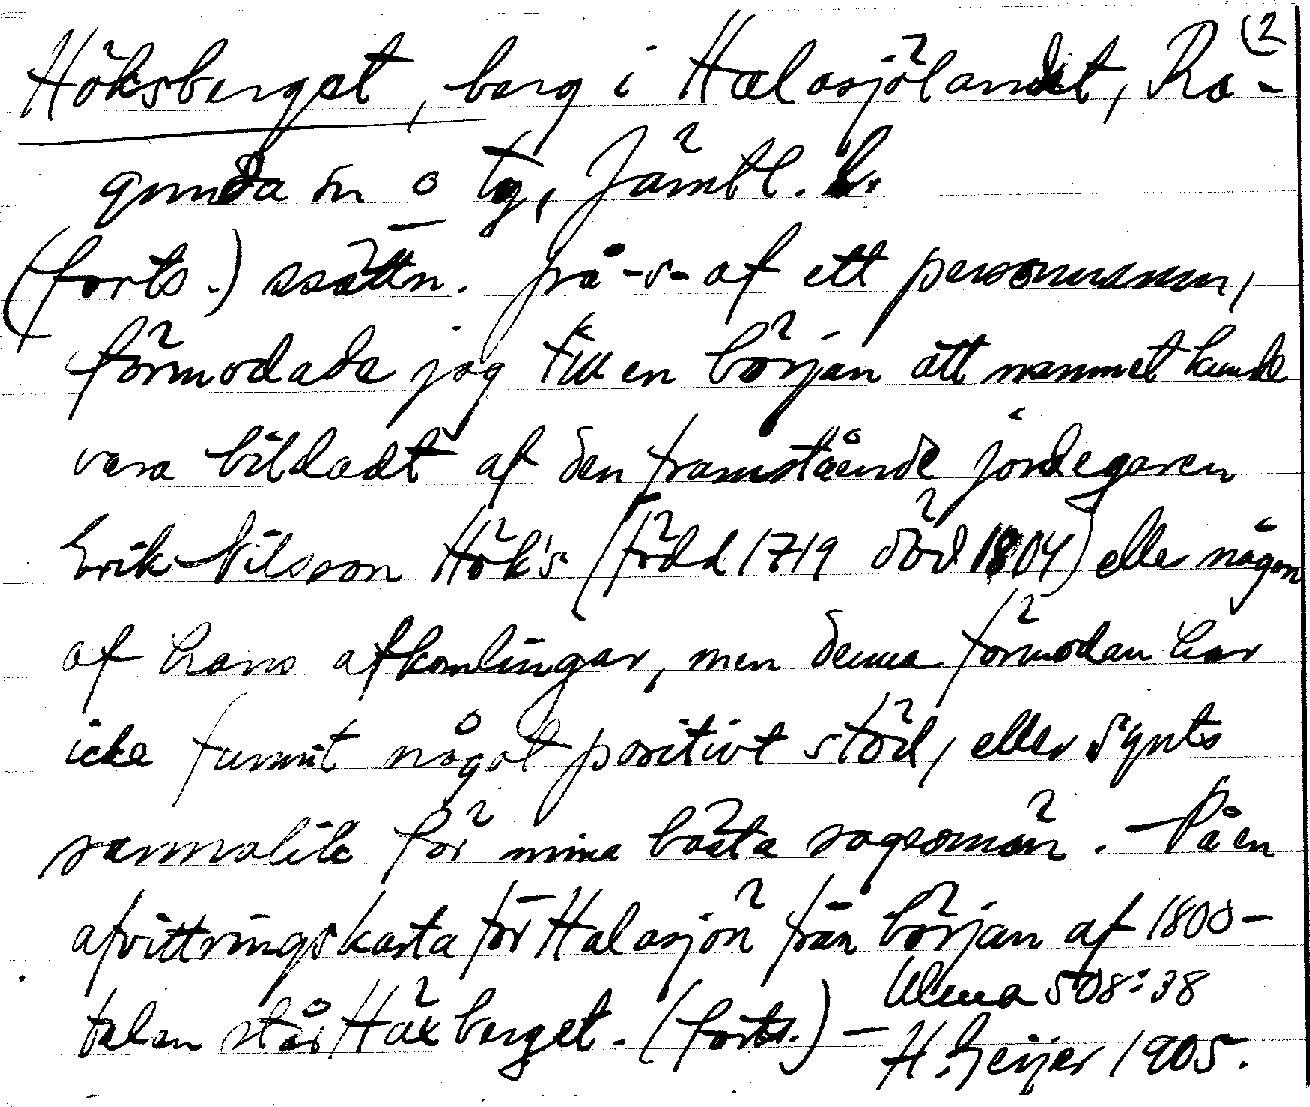 Höksberget, berg i Halasjölandet, Ra- (2
gunda sn o tg, Jämtl. l.
(forts.) ssättn. på -s- af ett personnamn,
förmodade jag till en början att namnet kunde
vara bildadt af den framstående jordegaren
Erik Nilsson Hök's (född 1719 död 1804) eller någon
af hans afkomlingar, men denna förmodan har
icke funnit något positivt stöd, eller synts
sannolik för mina bästa sagesmän. - På en
afvittringskarta för Halasjön från början af 1800-
talen står Häxberget. (forts.) -
Ulma 508:38
H. Geijer 1905.